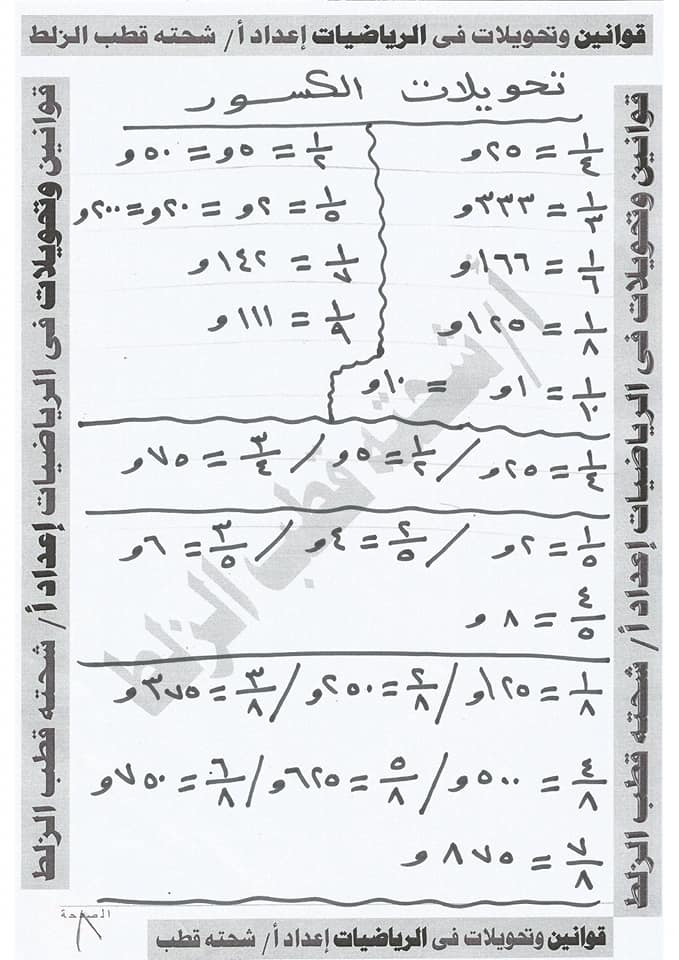 قوانين وتحويلات فى الرياضيات إعداد أ/ شحته قطب الزلط
تحويلات الكسور
١/٤ = ٢٥و
١/٢ = ٥و = ٥٠و
١/٣ = ٣٣٣و
١/٥ = ٢و = ٢٠و = ٢٠٠و
١/٦ = ١٦٦و
١/٧ = ١٤٢و
١/٨ = ١٢٥و
١/٩ = ١١١و
١/١٠ = ١و = ١٠و
١/٤ = ٢٥و / ١/٢ = ٥و / ٣/٤ = ٧٥و
١/٥ = ٢و / ٢/٥ = ٤و / ٣/٥ = ٦و
٤/٥ = ٨و
١/٨ = ١٢٥و / ٢/٨ = ٢٥٠و / ٣/٨ = ٣٧٥و
٤/٨ = ٥٠٠و / ٥/٨ = ٦٢٥و / ٦/٨ = ٧٥٠و
٧/٨ = ٨٧٥و
الصفحة
٨
قوانين وتحويلات فى الرياضيات إعداد أ/ شحته قطب
قوانين وتحويلات فى الرياضيات إعداد أ/ شحته قطب الزلط
قوانين وتحويلات فى الرياضيات إعداد أ/ شحته قطب الزلط
أ/شحته قطب الزلط